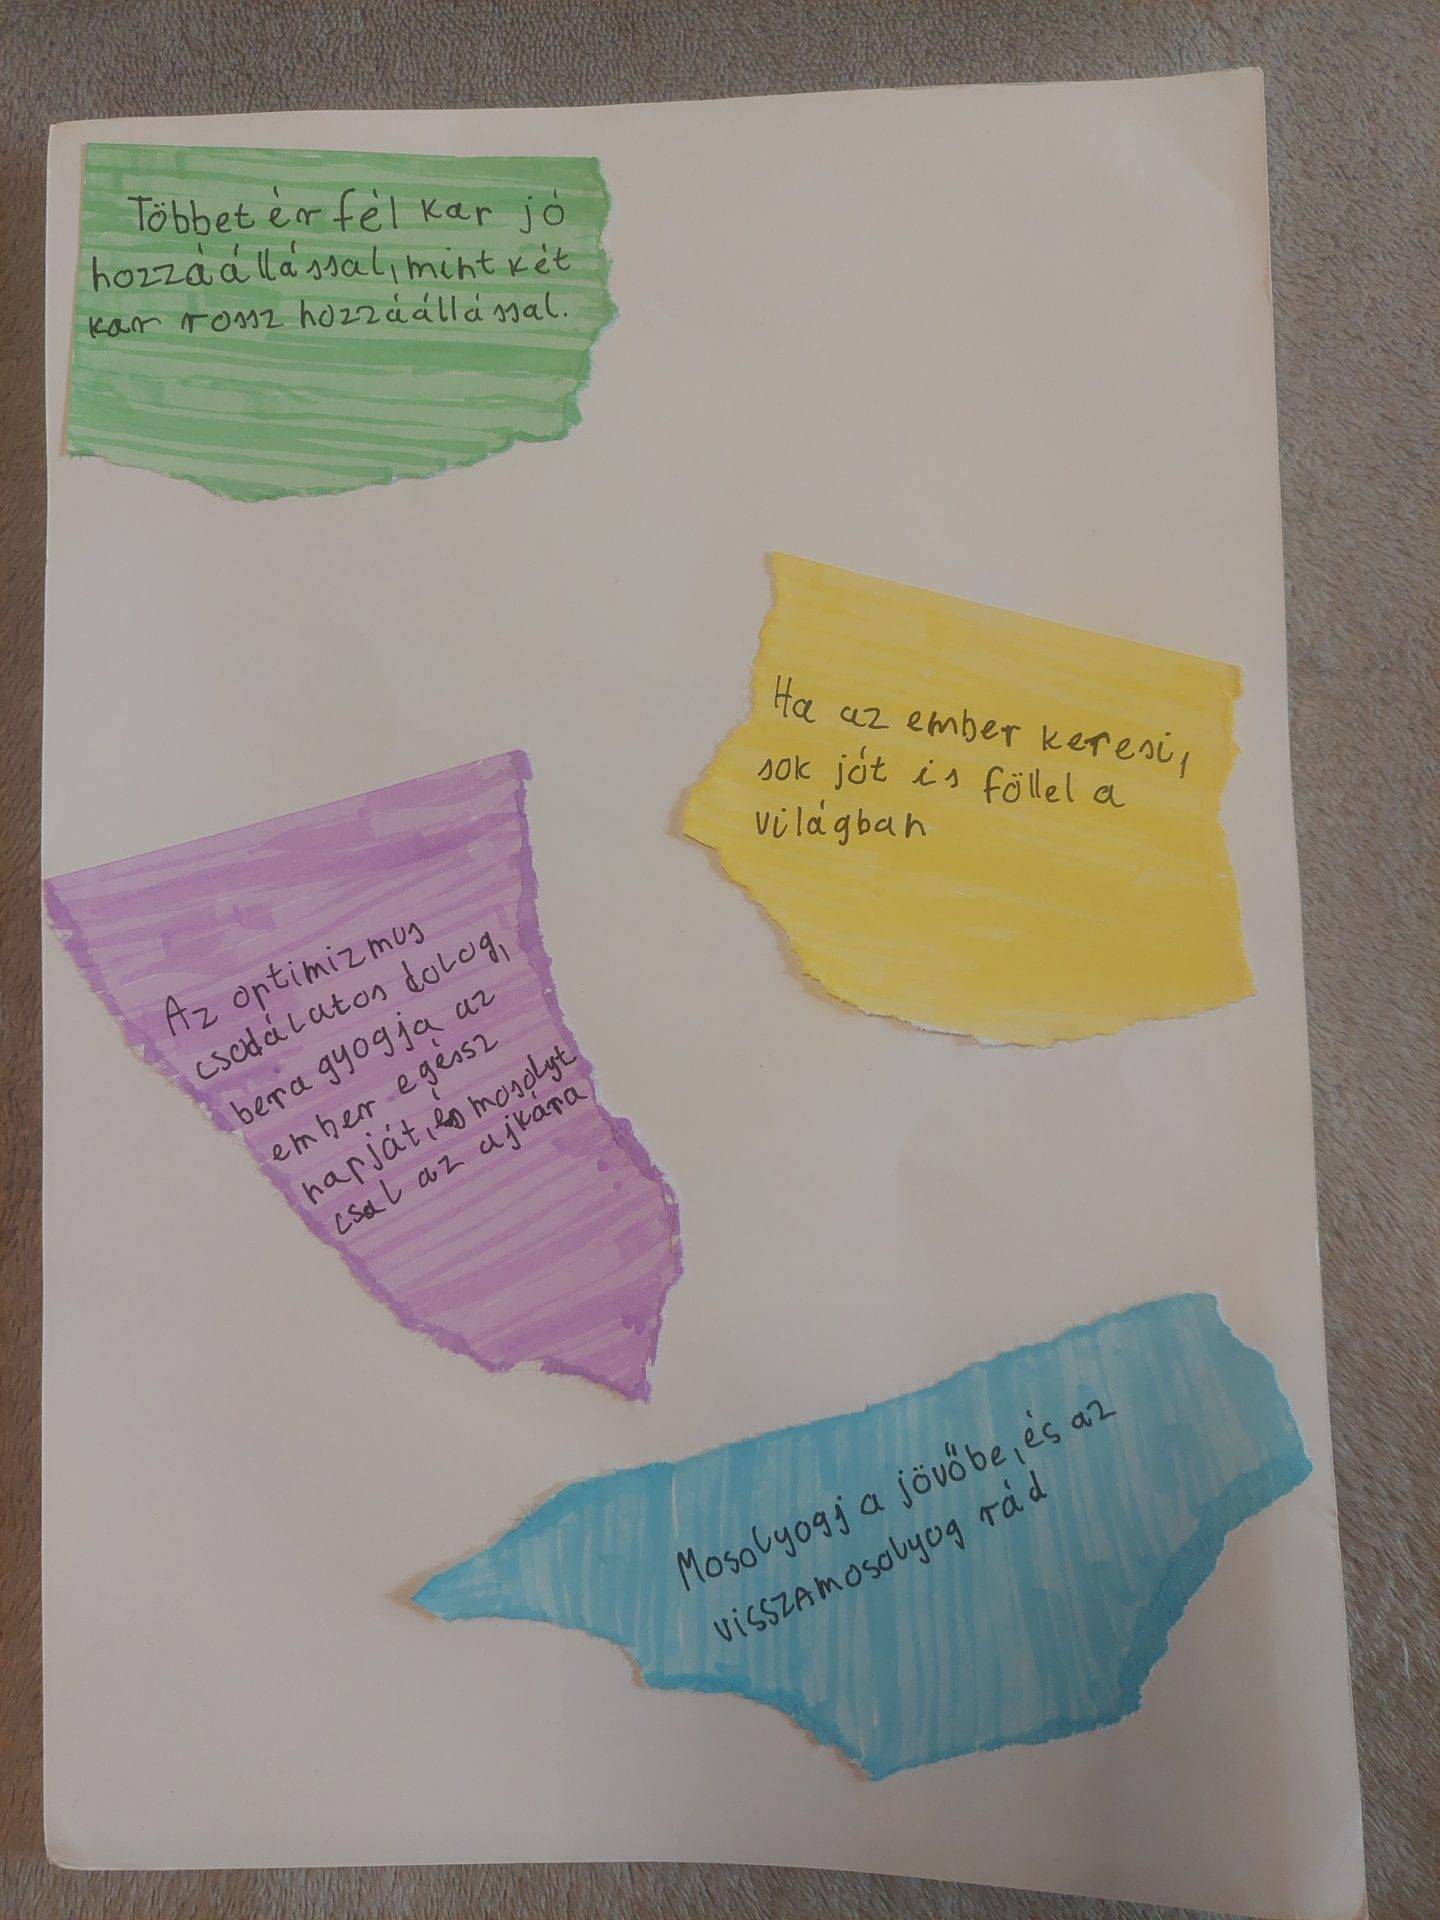 Többet ér fél kar jó
hozzáállással, mint két
kar rossz hozzáállással.
Ha az ember keresi,
sok jót is föllel a
világban
Az optimizmus
csodálatos dolog,
beragyogja az
ember egész
napját, és mosolyt
csal az ajkára
Mosolyogj a jövőbe, és az
visszamosolyog rád